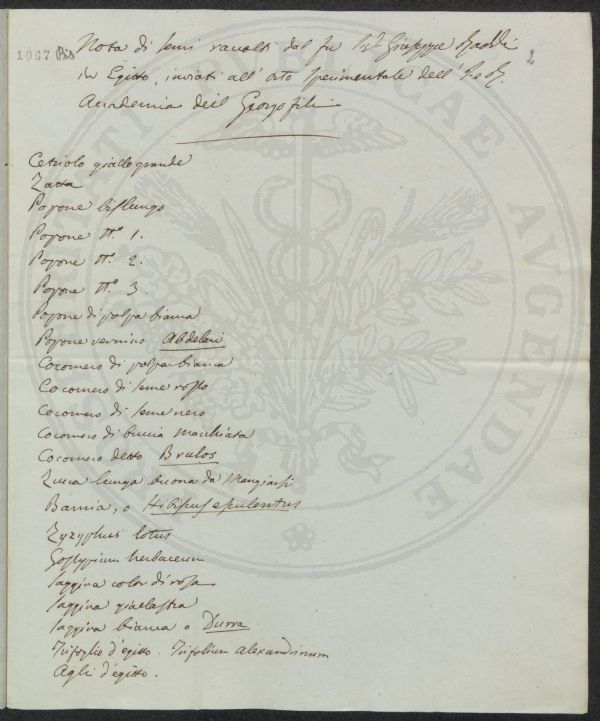 1067 Bis
Nota di semi racolti dal fu Pr. Giuseppe Raddi
in Egitto, inviati all' orto sperimentale dell' I. e R.
Accademia deil Georgofili
Cetriolo giallo grande
Zatta
Popone bislungo
Popone N.º 1.
Popone N.º 2.
Popone N.º 3.
Popone di polpa bianca
Popone vernino Abdelari
Cocomero di polpa bianca
Cocomero di seme rosso
Cocomero di seme nero
Cocomero di buccia macchiata
Cocomero detto Brulos
Zucca lunga buona da mangiarsi
Bamia, o Hibiscus esculentus
Zyzyphus lotus
Gossypium herbaceum
saggina color di rosa
saggina giallastra
saggina bianca o Durra
Trifoglio d'egitto. Trifolium alexandrinum
Agli d'egitto.
PUBLICAE
AUGENDAE